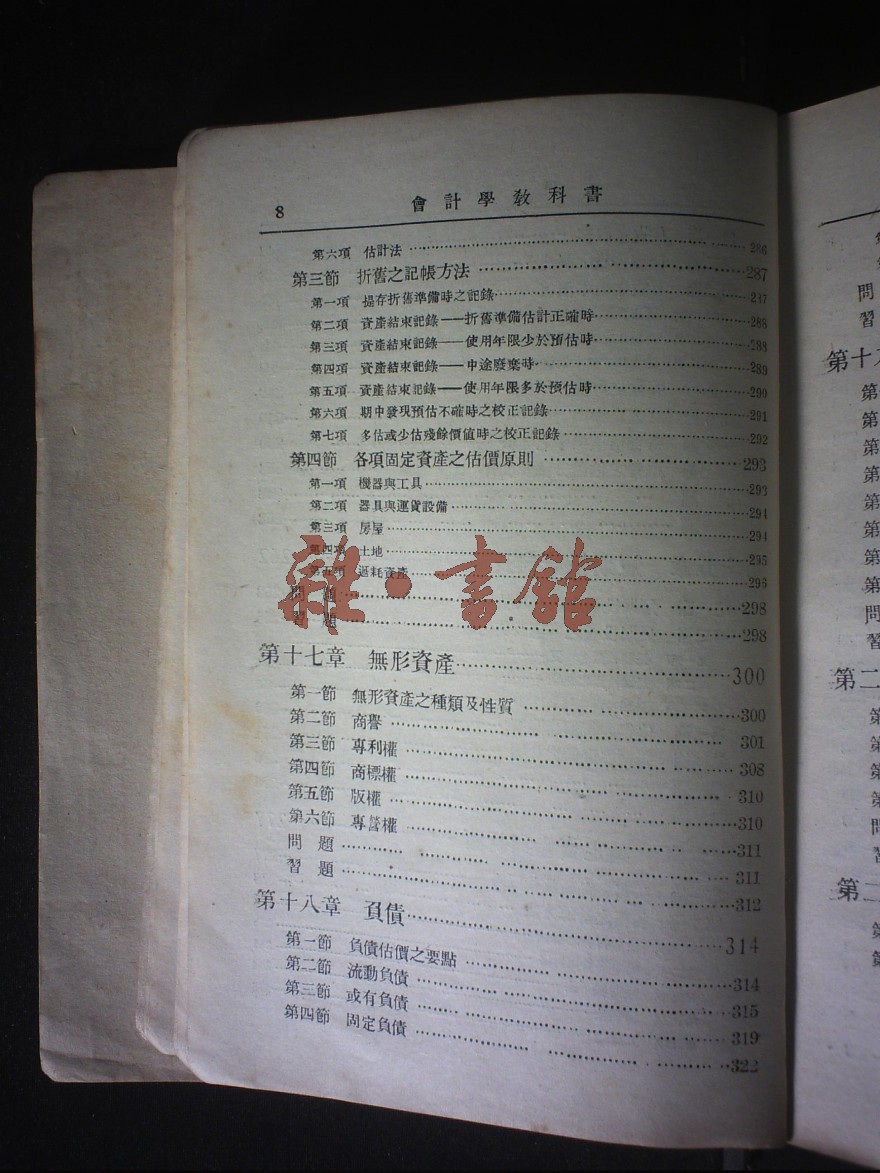 8 會計學教科書
第六項 估計法……286
第三節 折舊之記帳方法……287
第一項 提存折舊準備時之記錄……287
第二項 資產結束記錄——折舊準備估計正確時……288
第三項 資產結束記錄——使用年限少於預估時……288
第四項 資產結束記錄——中途廢棄時……289
第五項 資產結束記錄——使用年限多於預估時……290
第六項 期中發現預估不確時之校正記錄……291
第七項 多估或少估殘餘價值時之校正記錄……292
第四節 各項固定資產之估價原則……293
第一項 機器與工具……293
第二項 器具與運貨設備……294
第三項 房屋……294
第四項 土地……295
第五項 遞耗資產……296
問題……298
習題……298
第十七章 無形資產……300
第一節 無形資產之種類及性質……300
第二節 商譽……301
第三節 專利權……308
第四節 商標權……310
第五節 版權……310
第六節 專營權……311
問題……311
習題……312
第十八章 負債……314
第一節 負債估價之要點……314
第二節 流動負債……315
第三節 或有負債……319
第四節 固定負債……322
雜·書館
問
習
第十
第
第
第
第
第
第
第
第
問
習
第二
第
第
第
第
問
習
第二
第
第